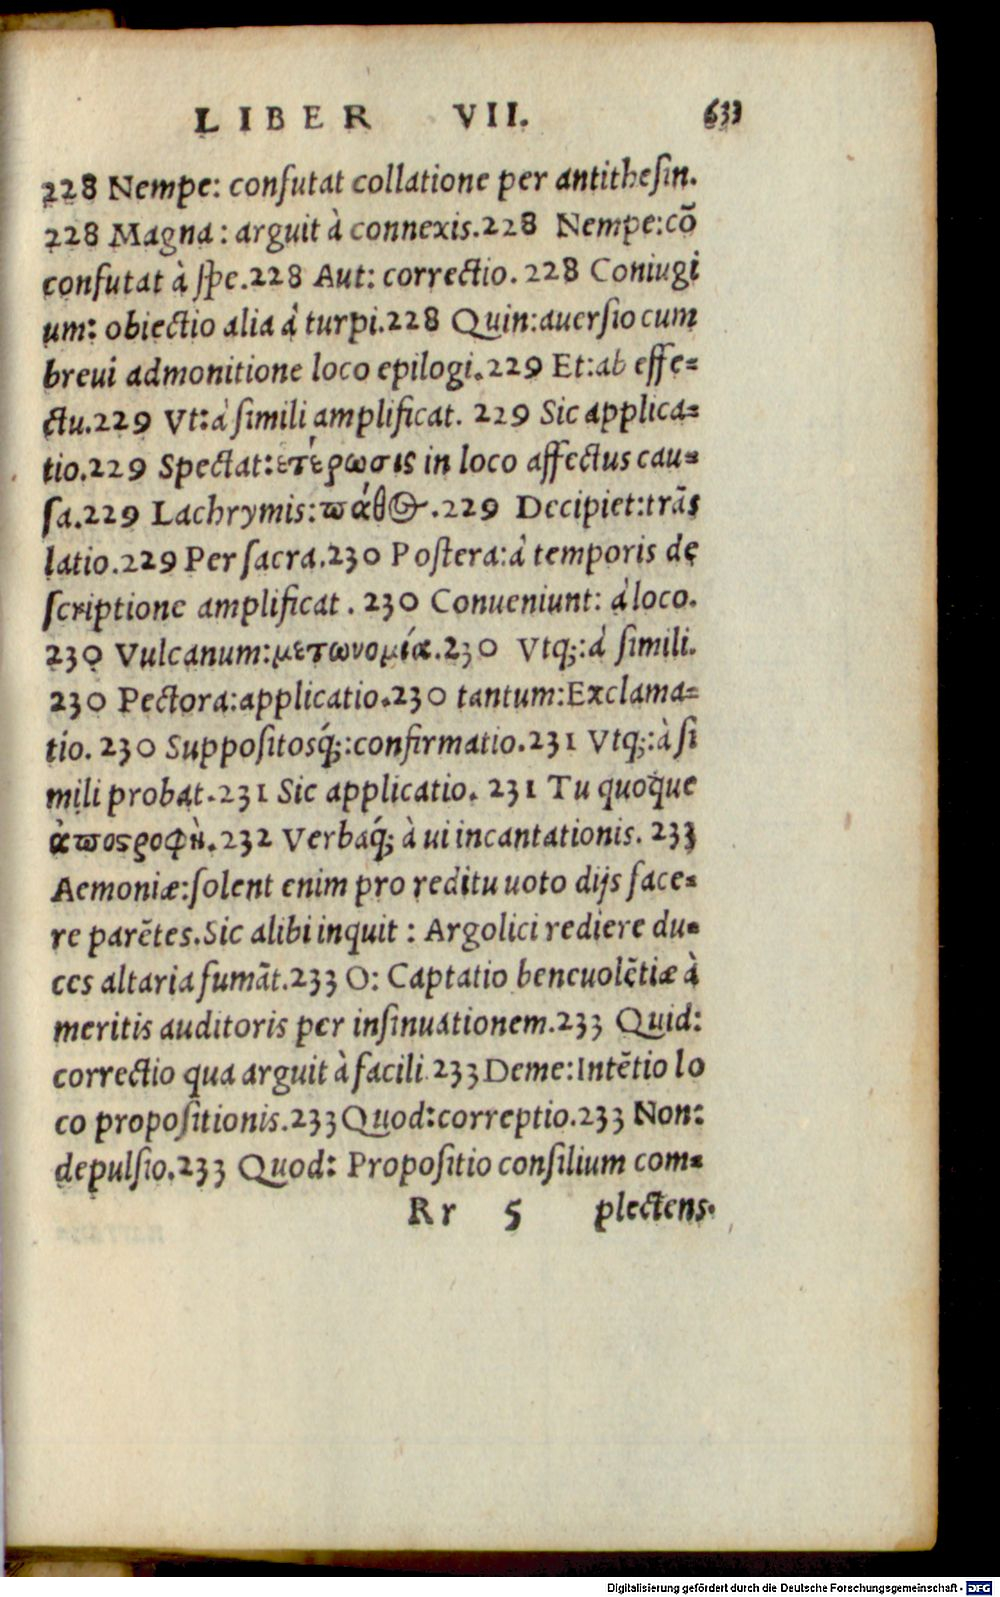 LIBER VII. 633
228 Nempe: confutat collatione per antithesin.
228 Magna: arguit à connexis. 228 Nempe: cõ
confutat à spe. 228 Aut: correctio. 228 Coniugi
um: obiectio alia à turpi. 228 Quin: auersio cum
breui admonitione loco epilogi. 229 Et: ab effe=
ctu. 229 Vt: à simili amplificat. 229 Sic applica=
tio. 229 Spectat: ετέρωσις in loco affectus cau=
sa. 229 Lachrymis: πάθος. 229 Decipiet: trãs
latio. 229 Per sacra. 230 Postera: à temporis de
scriptione amplificat. 230 Conueniunt: à loco.
230 Vulcanum: μετωνομία. 230 Vtq;: à simili.
230 Pectora: applicatio. 230 tantum: Exclama=
tio. 230 Suppositosq́;: confirmatio. 231 Vtq;: à si
mili probat. 231 Sic applicatio. 231 Tu quoque
ἀποςροφὴ. 232 Verbaq́; à ui incantationis. 233
Aemoniæ: solent enim pro reditu uoto dijs face=
re parẽtes. Sic alibi inquit: Argolici rediere du=
ces altaria fumãt. 233 O: Captatio beneuolẽtiæ à
meritis auditoris per insinuationem. 233 Quid:
correctio qua arguit à facili. 233 Deme: Intẽtio lo
co propositionis. 233 Quod: correptio. 233 Non:
depulsio. 233 Quod: Propositio consilium com=
Rr 5 plectens.
Digitalisierung gefördert durch die Deutsche Forschungsgemeinschaft - DFG